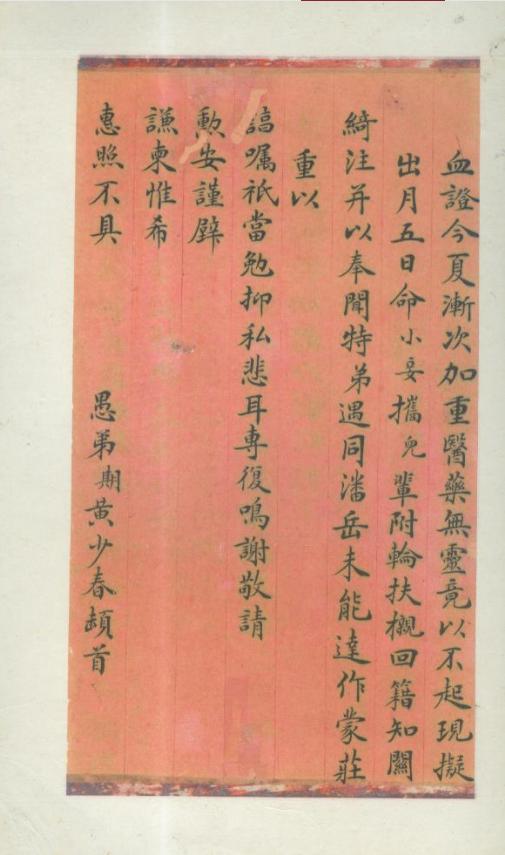 血證今夏漸次加重醫藥無靈竟以不起現擬
出月五日命小妾攜兒輩附輪扶櫬回籍知關
綺注并以奉聞特弟遇同潘岳未能達作蒙莊
重以
諄囑祇當勉抑私悲耳專復鳴謝敬請
勳安謹璧
謙柬惟希
惠照不具
愚弟期黃少春頓首